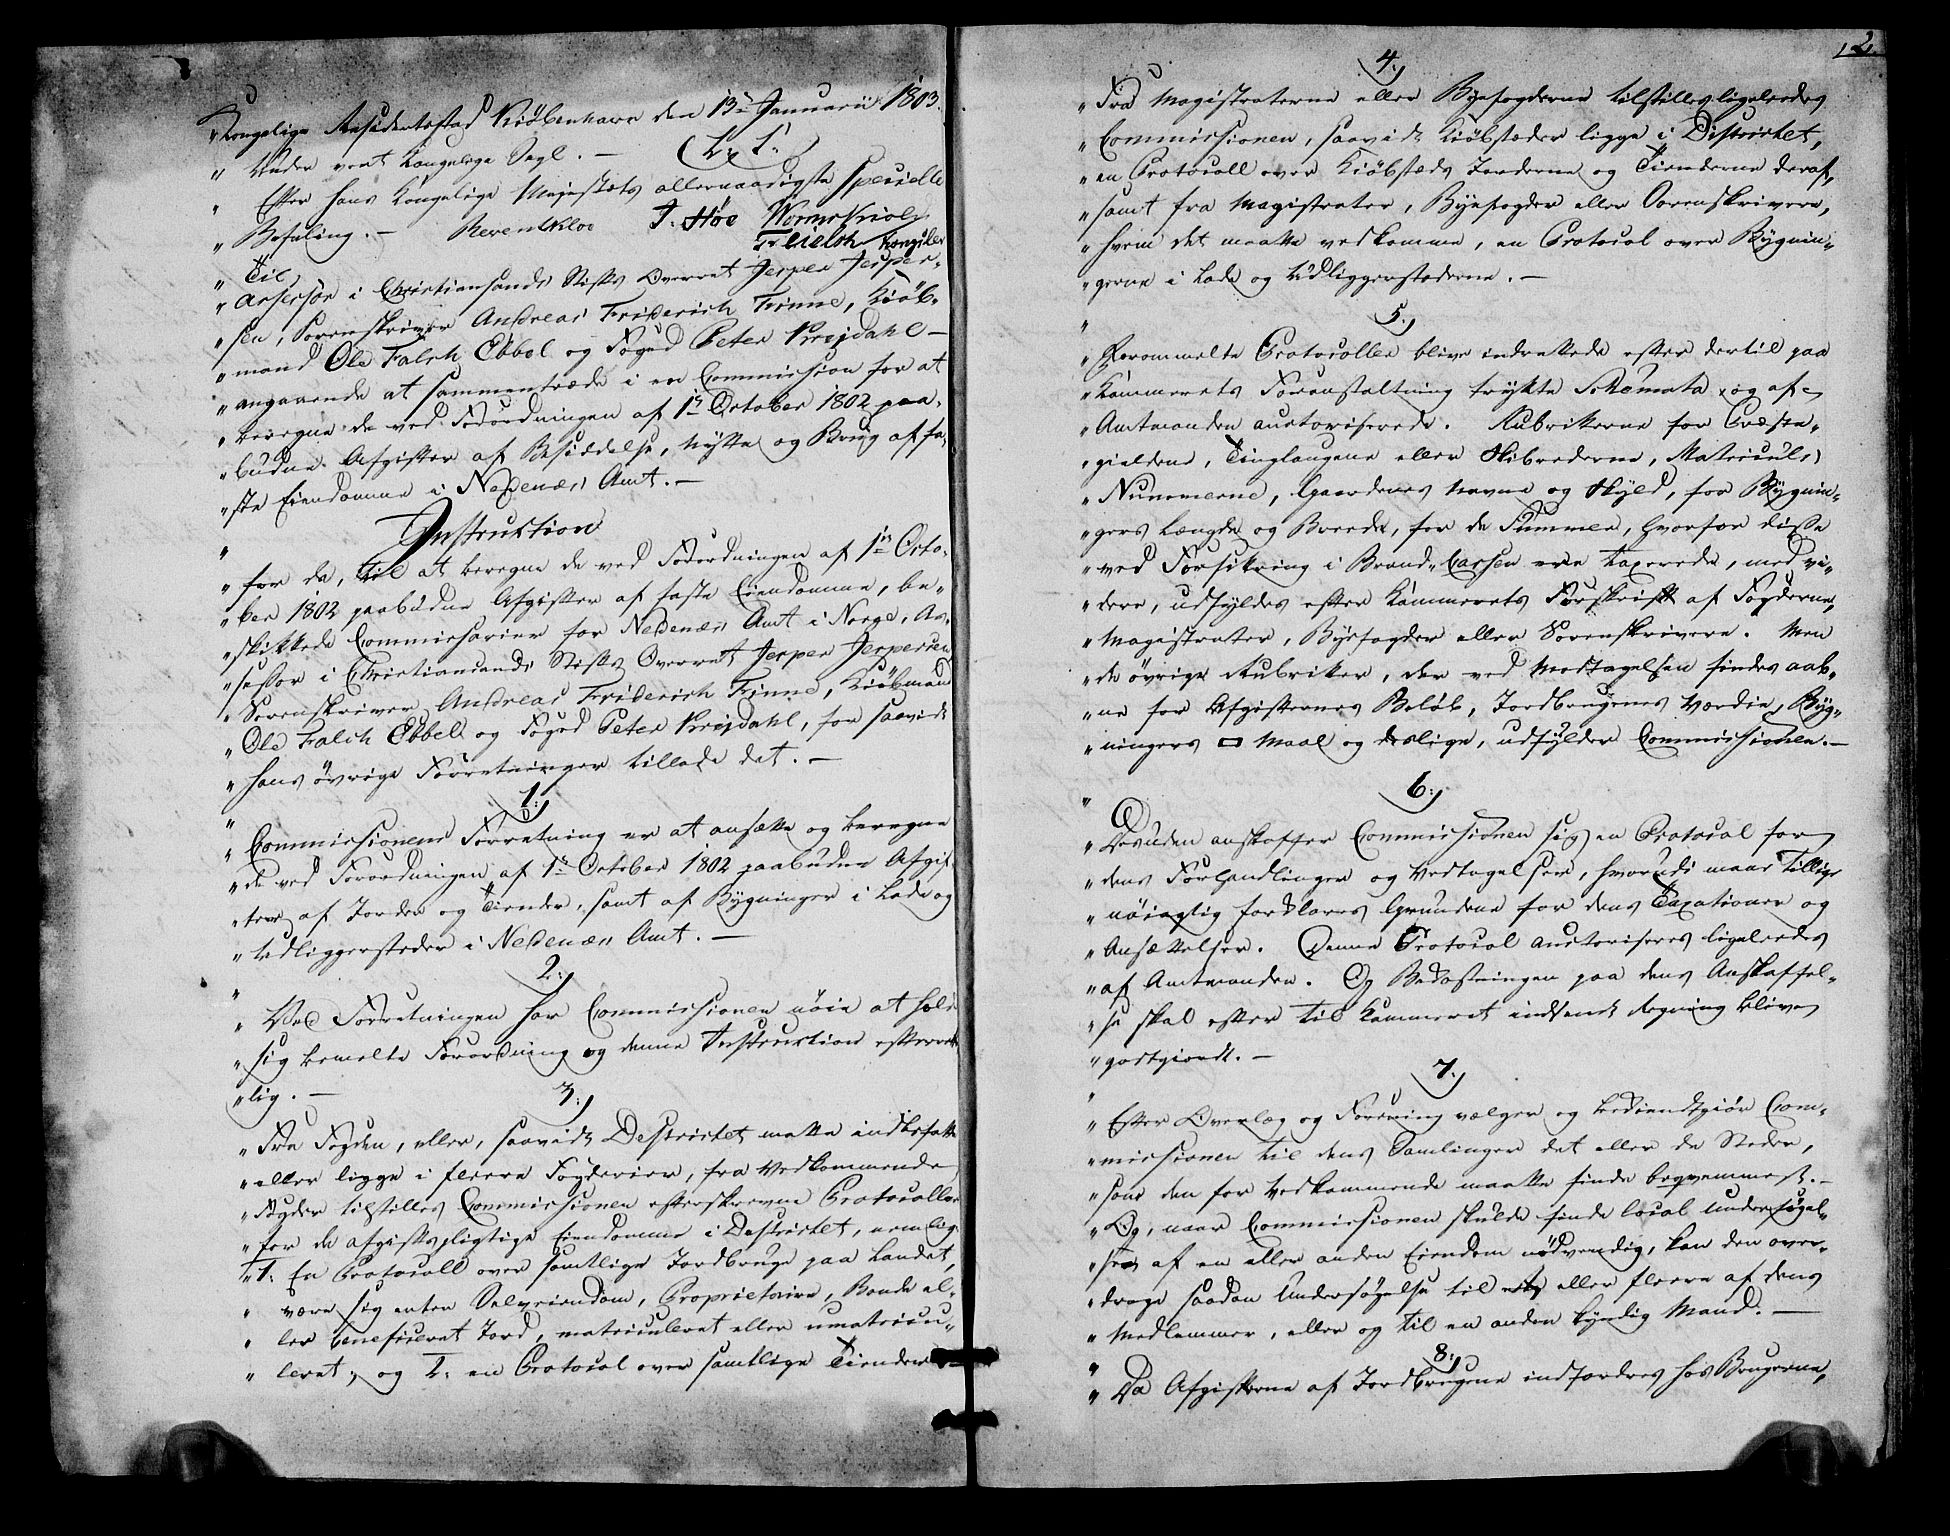 "Kongelige Residentsstad Kiöbenhavn den 13de Januarii 1803.
" Under vort Kongelige Segl. — (L: S:)
" Efter Hans Kongelige Majestæts allernaadigste Specielle
" Befaling. — Reventklou J. Höe Wormskiold
Fr: Cielsh Kongslev
" Til
" Assessor i Christiansands Stifts Overret Jesper Jesper-
" sen, Sorenskriver Andreas Friderich Finne, Kiöb-
" mand Ole Falch Ebbel og Foged Peter Krejdahl —
" angaaende at sammentræde i en Commission for at
" beregne de ved Forordningen af 1ste October 1802 paa-
" budne Afgifter af Besiddelse, Nytte og Brug af fa-
" ste Eiendomme i Nedenæs Amt. —
" Instruktion
" for de, til at beregne de ved Forordningen af 1ste Octo-
" ber 1802 paabudne Afgifter af faste Eiendomme, be-
" skikkede Commissarier for Nedenæs Amt i Norge, As-
" sessor i Christiansands Stifts Overret Jesper Jespersen
" Sorenskriver Andreas Friderich Finne, Kiöbmand
" Ole Falch Ebbel og Foged Peter Krejdahl, for saavidt
" hans övrige Forretninger tillade det. —
" 1:)
" Commissionens Forretning er at ansætte og beregne
" de ved Forordningen af 1ste October 1802 paabudne Afgif-
" ter af Jorder og Tiender, samt af Bygninger i Lade og
" Udliggersteder i Nedenæs Amt. —
" 2:)
" Ved Forretningen har Commissionen nöie at holde
" sig bemelte Forordning og denne Instruktion efterret-
" lig. — 3:)
" Fra Fogden, eller, saavidt Destriktet maatte indbefatte
" eller ligge i fleere Fogderier, fra Vedkommende
" Fogder tilstilles Commissionen efterskrevne Protocoller
" for de afgiftspligtige Eiendomme i Destriktet, nemlig:
" 1: En Protocoll over samtlige Jordbruge paa Landet,
" være sig enten Selveiendom, Proprietaire, Bonde el-
" ler beneficeret Jord, matriculeret eller umatricu-
" leret; og 2: en Protocol over samtlige Tiender. —
2.
4:)
" Fra Magistraterne eller Byefogderne tilstilles ligeledes
" Commissionen, saavidt Kiöbstæder ligge i Distriktet,
" en Protocoll over Kiöbstæds Jorderne og Tienderne deraf,
" samt fra Magistrater, Byefogder eller Sorenskrivere,
" hvem det maatte vedkomme, en Protocol over Bygnin-
" gerne i Lade og Udliggerstæderne. —
" 5:)
" Ferommelte Protocoller blive indrettede efter dertil paa
" Kammerets Foranstaltning trykte Schemata, og af
" Amtmanden auctoriserede. Rubrikerne for Præste-
" gieldene, Tinglaugene eller Skibrederne, Matricul,
" Nummerne, Gaardenes Navne og Skyld, for Bygnin-
" gers Længde og Breede, for de Summer, hvorfor disse
" ved Forsikring i Brand-Cassen ere taxerede, med vi-
" dere, udfyldes efter Kammerets Forskrift af Fogderne,
" Magistrater, Byefogder eller Sorenskrivere. Men
" de övrige Rubriker, der ved Modtagelsen findes aab-
" ne for Afgifternes Belöb, Jordbrugenes Værdie, Byg-
" ningers □ Maal og deslige, udfylder Commissionen. —
" 6:)
" Desuden anskaffer Commissionen sig en Protocol for
" dens Forhandlinger og Vedtagelser, hvorudi maae tillige
" nöiagtig forklares Grundene for dens Taxationer og
" Ansættelser. Denne Protocol auctoriseres ligeledes
" af Amtmanden. Og Bekostningen paa dens Anskaffel-
" se skal efter til Kammeret indsendt Regning blive
" godtgiordt. —
" 7:)
" Efter Overlæg og Forening vælger og bekiendtgiör Com-
" missionen til dens Samlinger det eller de Steder,
" som den for Vedkommende maatte finde beqvemmest. —
" Og, naar Commissionen skulde finde local Undersögel-
" se af en eller anden Eiendom nödvendig, kan den over-
" drage saadan Undersögelse til et eller fleere af dens
" Medlemmer, eller og til en anden kyndig Mand. —
" 8:)
" Da Afgifterne af Jordbrugene indfordres hos Brugerne,